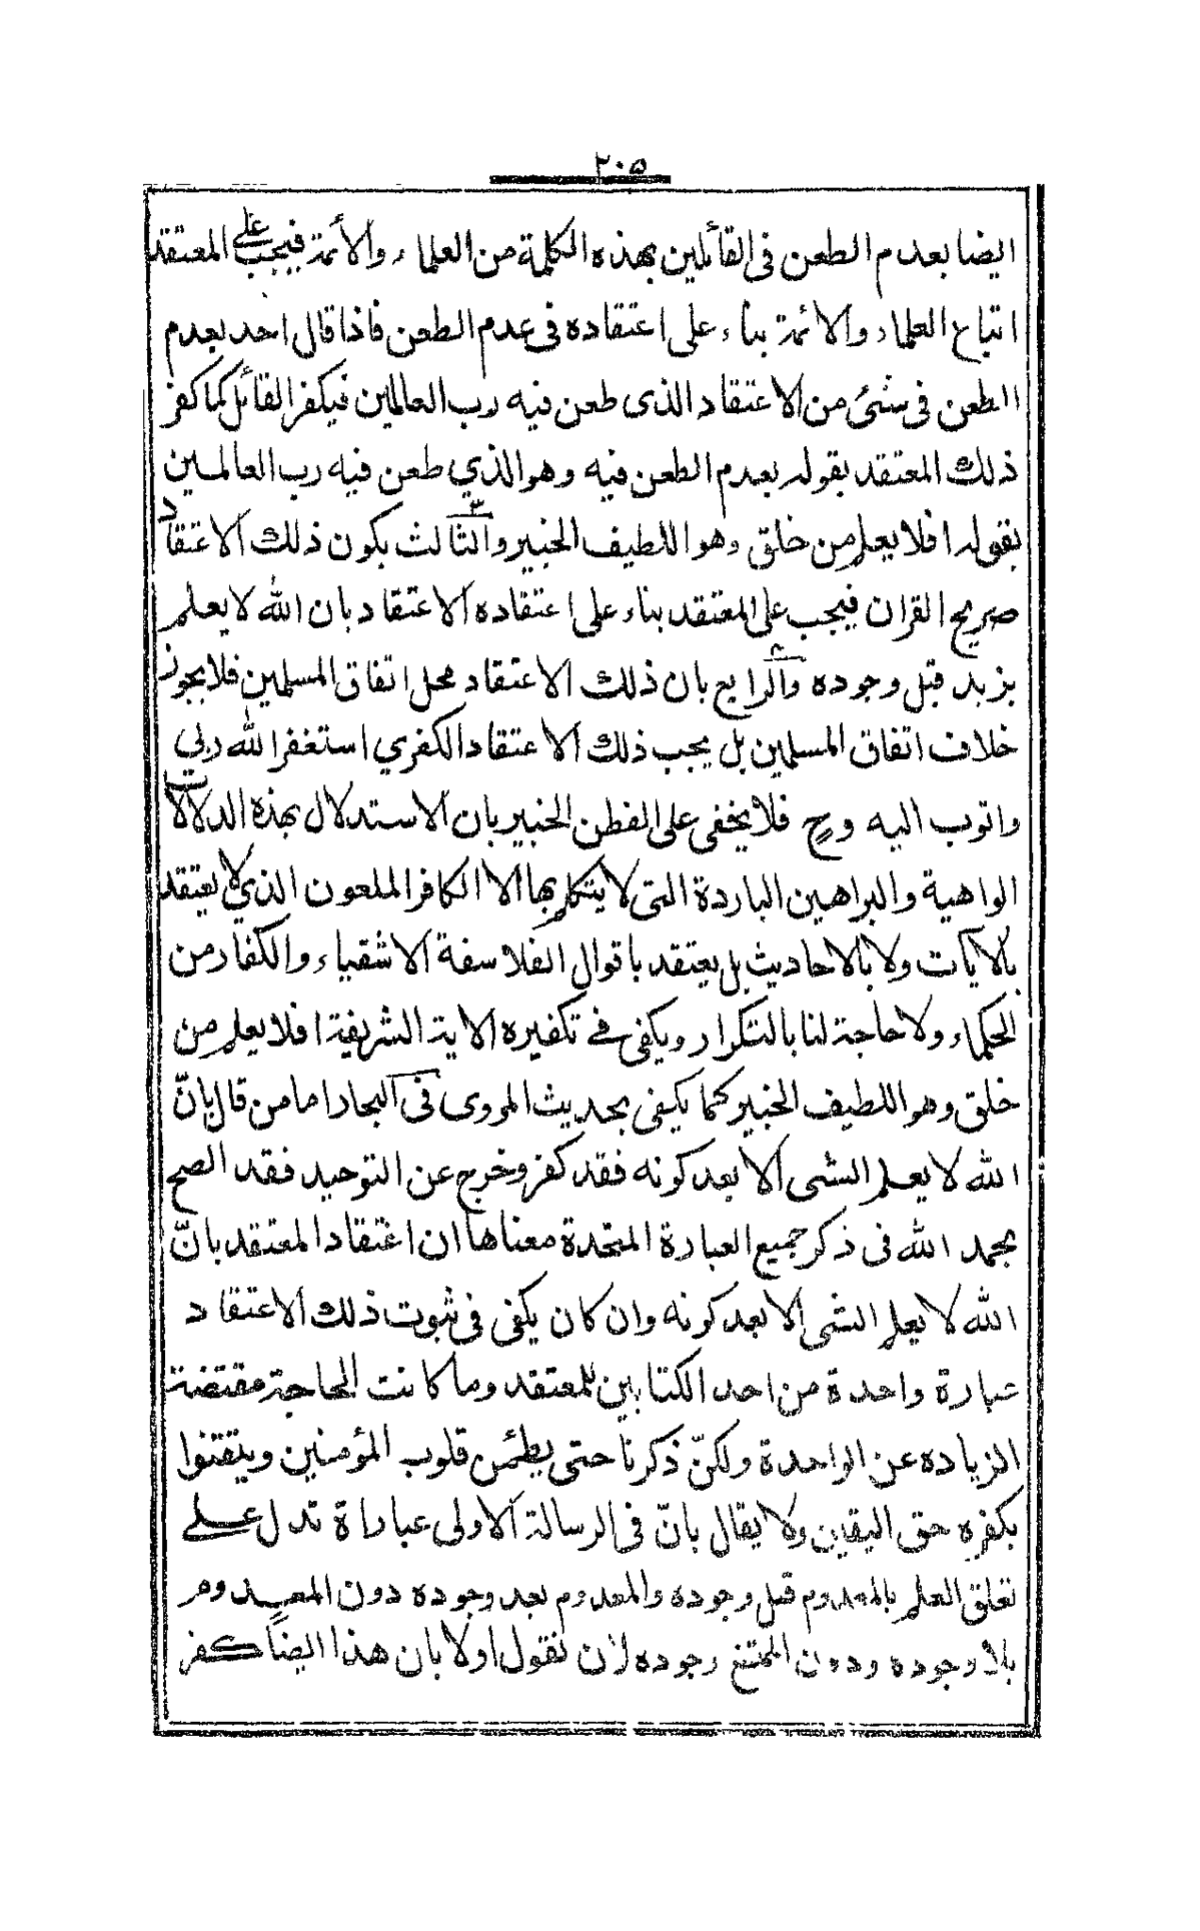 ٢٠۵
ايضا بعدم الطعن فى القائلين بهذه الكلمة من العلماء والأئمة فيجب على المعتقد
اتباع العلماء والائمة بناء على اعتقاده فى عدم الطعن فاذا قال احد بعدم
الطعن فى شئ من الاعتقاد الذى طعن فيه رب العالمين فيكفر القائل كما كفر
ذلك المعتقد بقوله بعدم الطعن فيه وهو الذي طعن فيه رب العالمين
بقوله افلا يعلم من خلق وهو اللطيف الخبير والثالث بكون ذلك الاعتقاد
صريح القران فيجب على المعتقد بناء على اعتقاده الاعتقاد بان الله لا يعلم
بزيد قبل وجوده والرابع بان ذلك الاعتقاد محل اتفاق المسلمين فلا يجوز
خلاف اتفاق المسلمين بل يجب ذلك الاعتقاد الكفري استغفر الله ربي
واتوب اليه وح فلا يخفى على الفطن الخبير بان الاستدلال بهذه الدلالات
الواهية والبراهين الباردة التى لا يتكلم بها الا الكافر الملعون الذي لا يعتقد
بالايات ولا بالاحاديث بل يعتقد باقوال الفلاسفة الاشقياء والكفار من
الحكماء ولا حاجة لنا بالتكرار ويكفى في تكفيره الاية الشريفة افلا يعلم من
خلق وهو اللطيف الخبير كما يكفى بحديث المروى فى البحار اما من قال بانّ
الله لا يعلم الشى الا بعد كونه فقد كفر وخرج عن التوحيد فقد الصح
بحمد الله فى ذكر جميع العبارة المتحدة معناها ان اعتقاد المعتقد بانّ
الله لا يعلم الشى الا بعد كونه وان كان يكفى فى ثبوت ذلك الاعتقاد
عبارة واحدة من احد الكتابين للمعتقد وما كانت الحاجة مقتضة
الزياده عن الواحدة ولكنّ ذكرنا حتى يطئمن قلوب المؤمنين ويتقنوا
بكفره حق اليقين ولا يقال بانّ فى الرسالة الاولى عباراة تدل على
تعلق العلم بالمعدوم قبل وجوده والمعدوم بعد وجوده دون المعدوم
بلا وجوده ودون الممتنع وجوده لان نقول اولا بان هذا ايضاً كفر